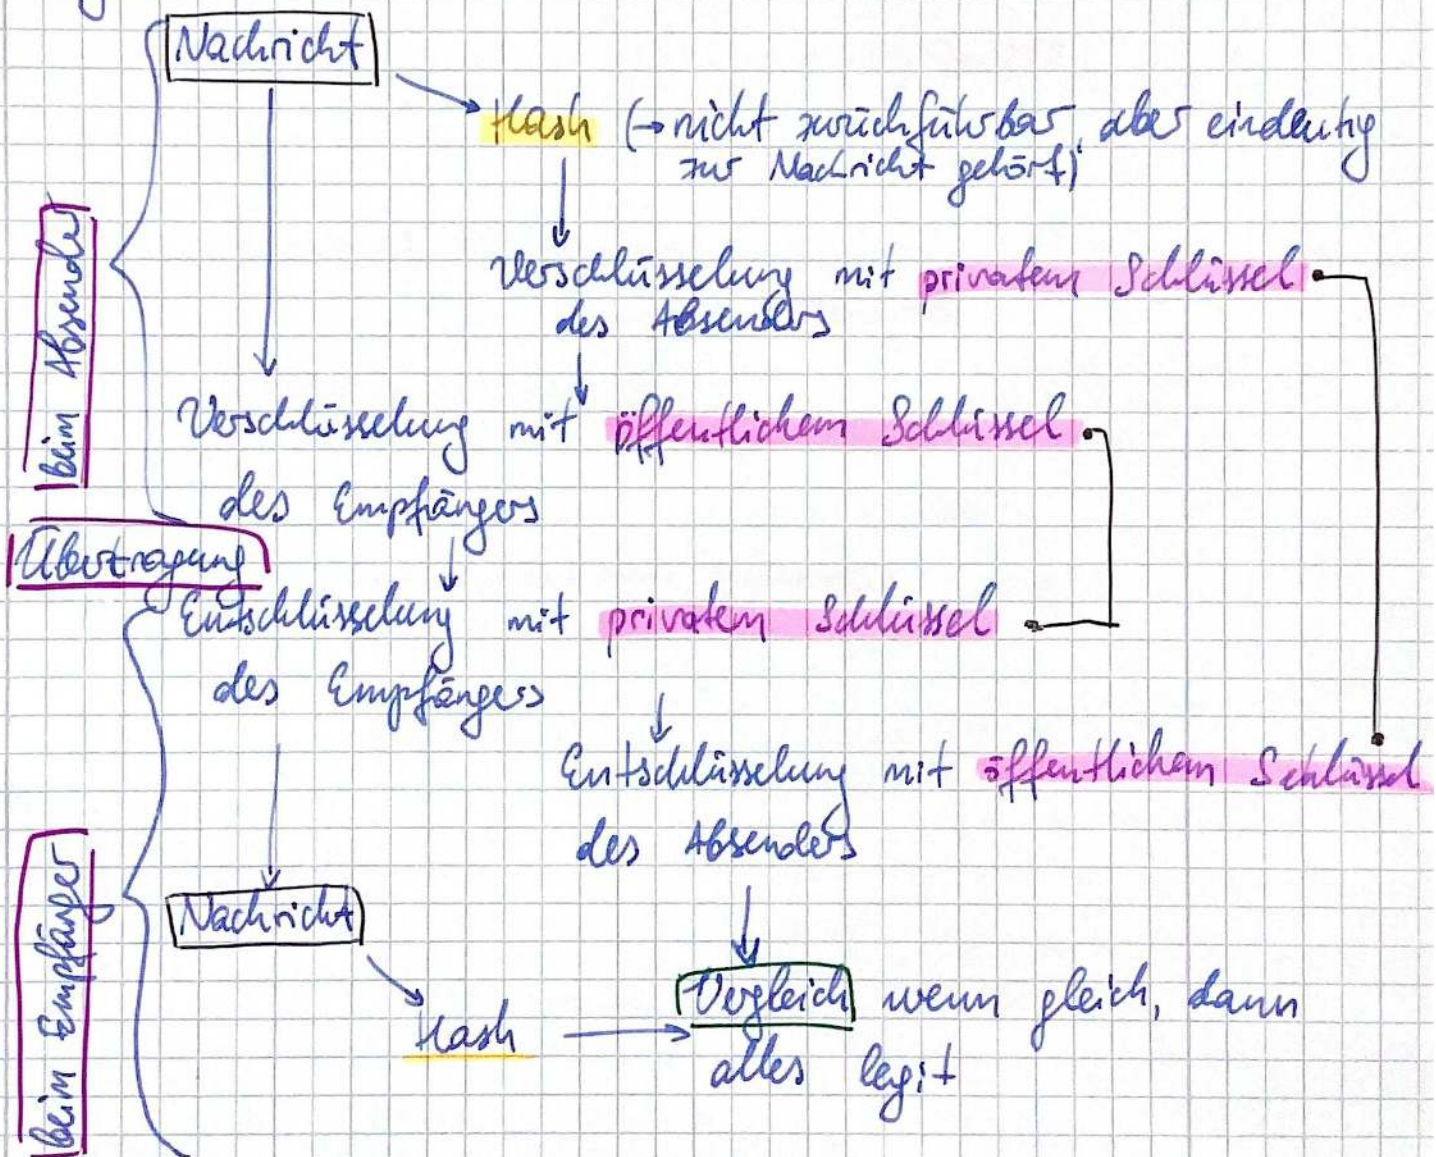 Nachricht
Hash (→ nicht zurückführbar, aber eindeutig
zur Nachricht gehört)
Verschlüsselung mit privatem Schlüssel
des Absenders
beim Absender
Verschlüsselung mit öffentlichem Schlüssel
des Empfängers
Übertragung
Entschlüsselung mit privatem Schlüssel
des Empfängers
Entschlüsselung mit öffentlichem Schlüssel
des Absenders
beim Empfänger
Nachricht
Vergleich wenn gleich, dann
Hash
alles legit